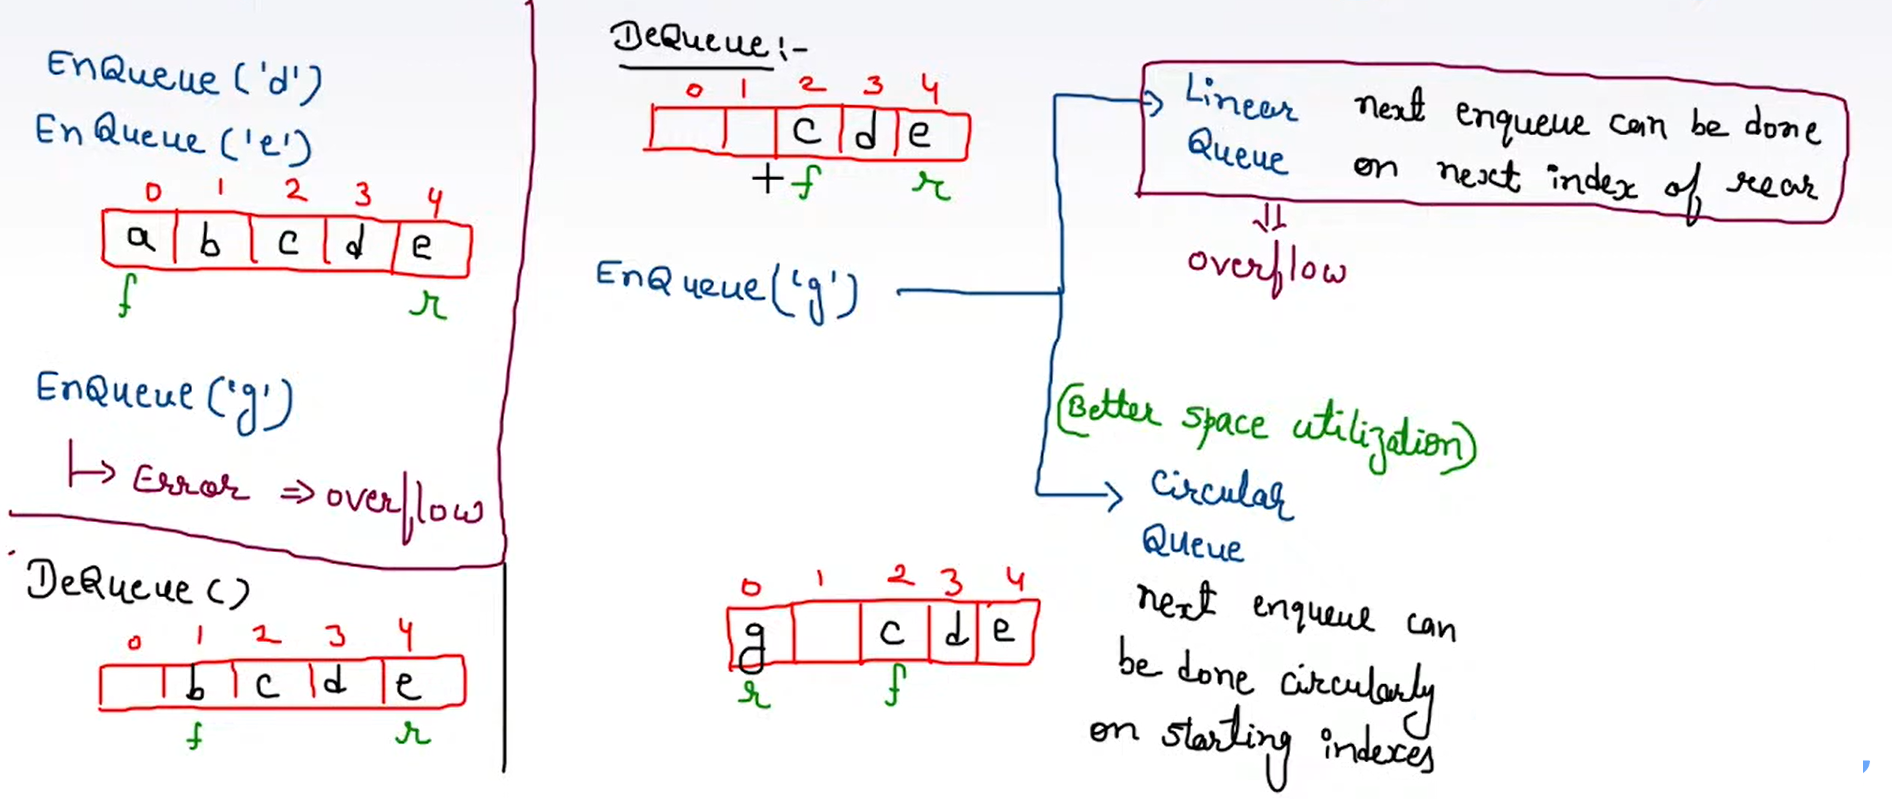 EnQueue ('d')
EnQueue ('e')
0 1 2 3 4
a b c d e
f r
EnQueue ('g')
↳ Error ⇒ overflow
DeQueue ()
0 1 2 3 4
b c d e
f r
DeQueue :-
0 1 2 3 4
c d e
f r
EnQueue ('g')
Linear Queue
next enqueue can be done
on next index of rear
⇓
overflow
(Better space utilization)
Circular
Queue
next enqueue can
be done circularly
on starting indexes
0 1 2 3 4
g c d e
r f